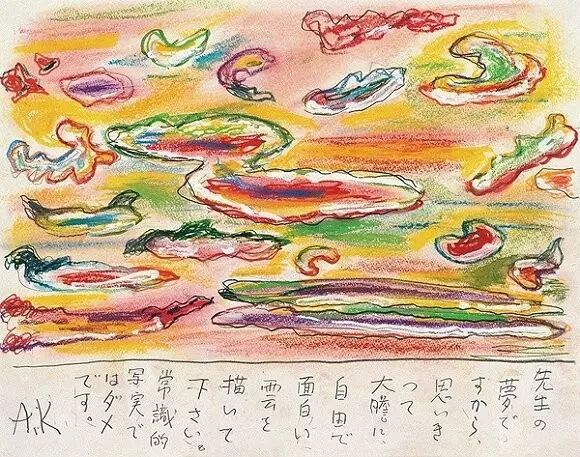 先生の
夢で
すから、
思いき
って
大膽に、
自由で
面白い
雲を
描いて
下さい。
常識的
写実で
はダメ
です。
A.K